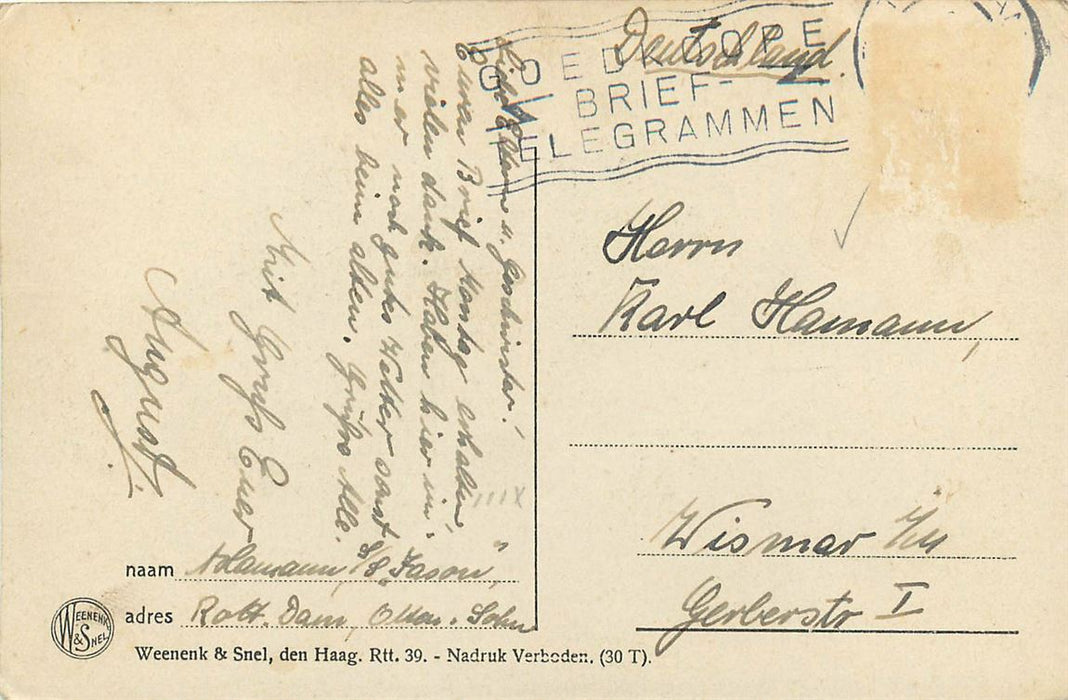 GOEDKOOPE
BRIEF-
TELEGRAMMEN
Deutschland.
Liebe Eltern u. Geschwister!
Euren Brief Montag erhalten,
vielen dank. Haben hier im-
mer noch gutes Wetter sonst
alles beim alten. Grüße Alle.
Mit Gruß Euer
August.
Herrn
Karl Hamann,
Wismar i/M
Gerberstr I
naam A Hamann, S/S „Jason“
adres Rott. Dam,
WEENENK & SNEL
Weenenk & Snel, den Haag. Rtt. 39. - Nadruk Verboden. (30 T).